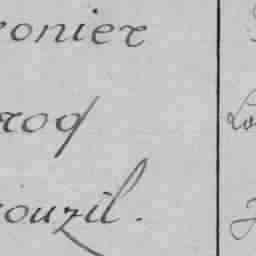 ronier
roq
ouzil.